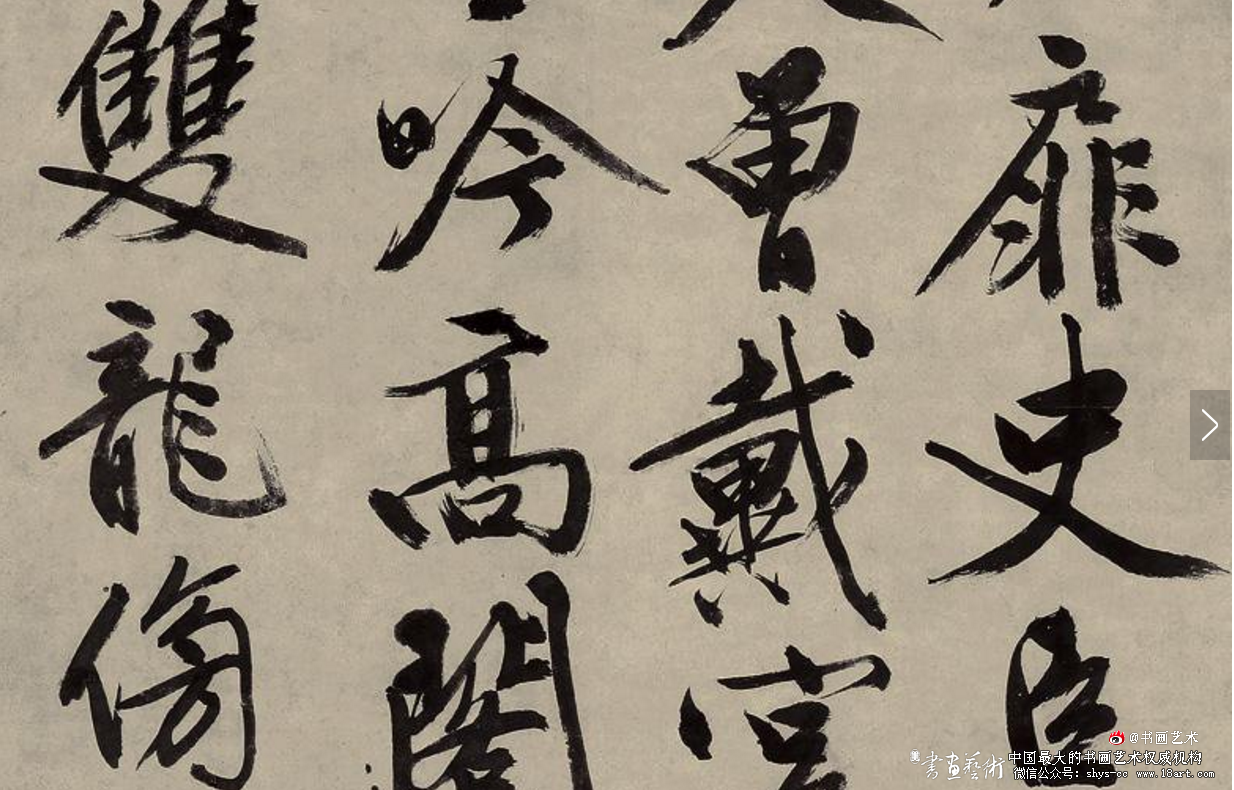 扉史臣
曾戴宫
吟高阁
雙龍傍
@书画艺术
書畫藝術
中国最大的书画艺术权威机构
微信公众号：shys-cc www.18art.com